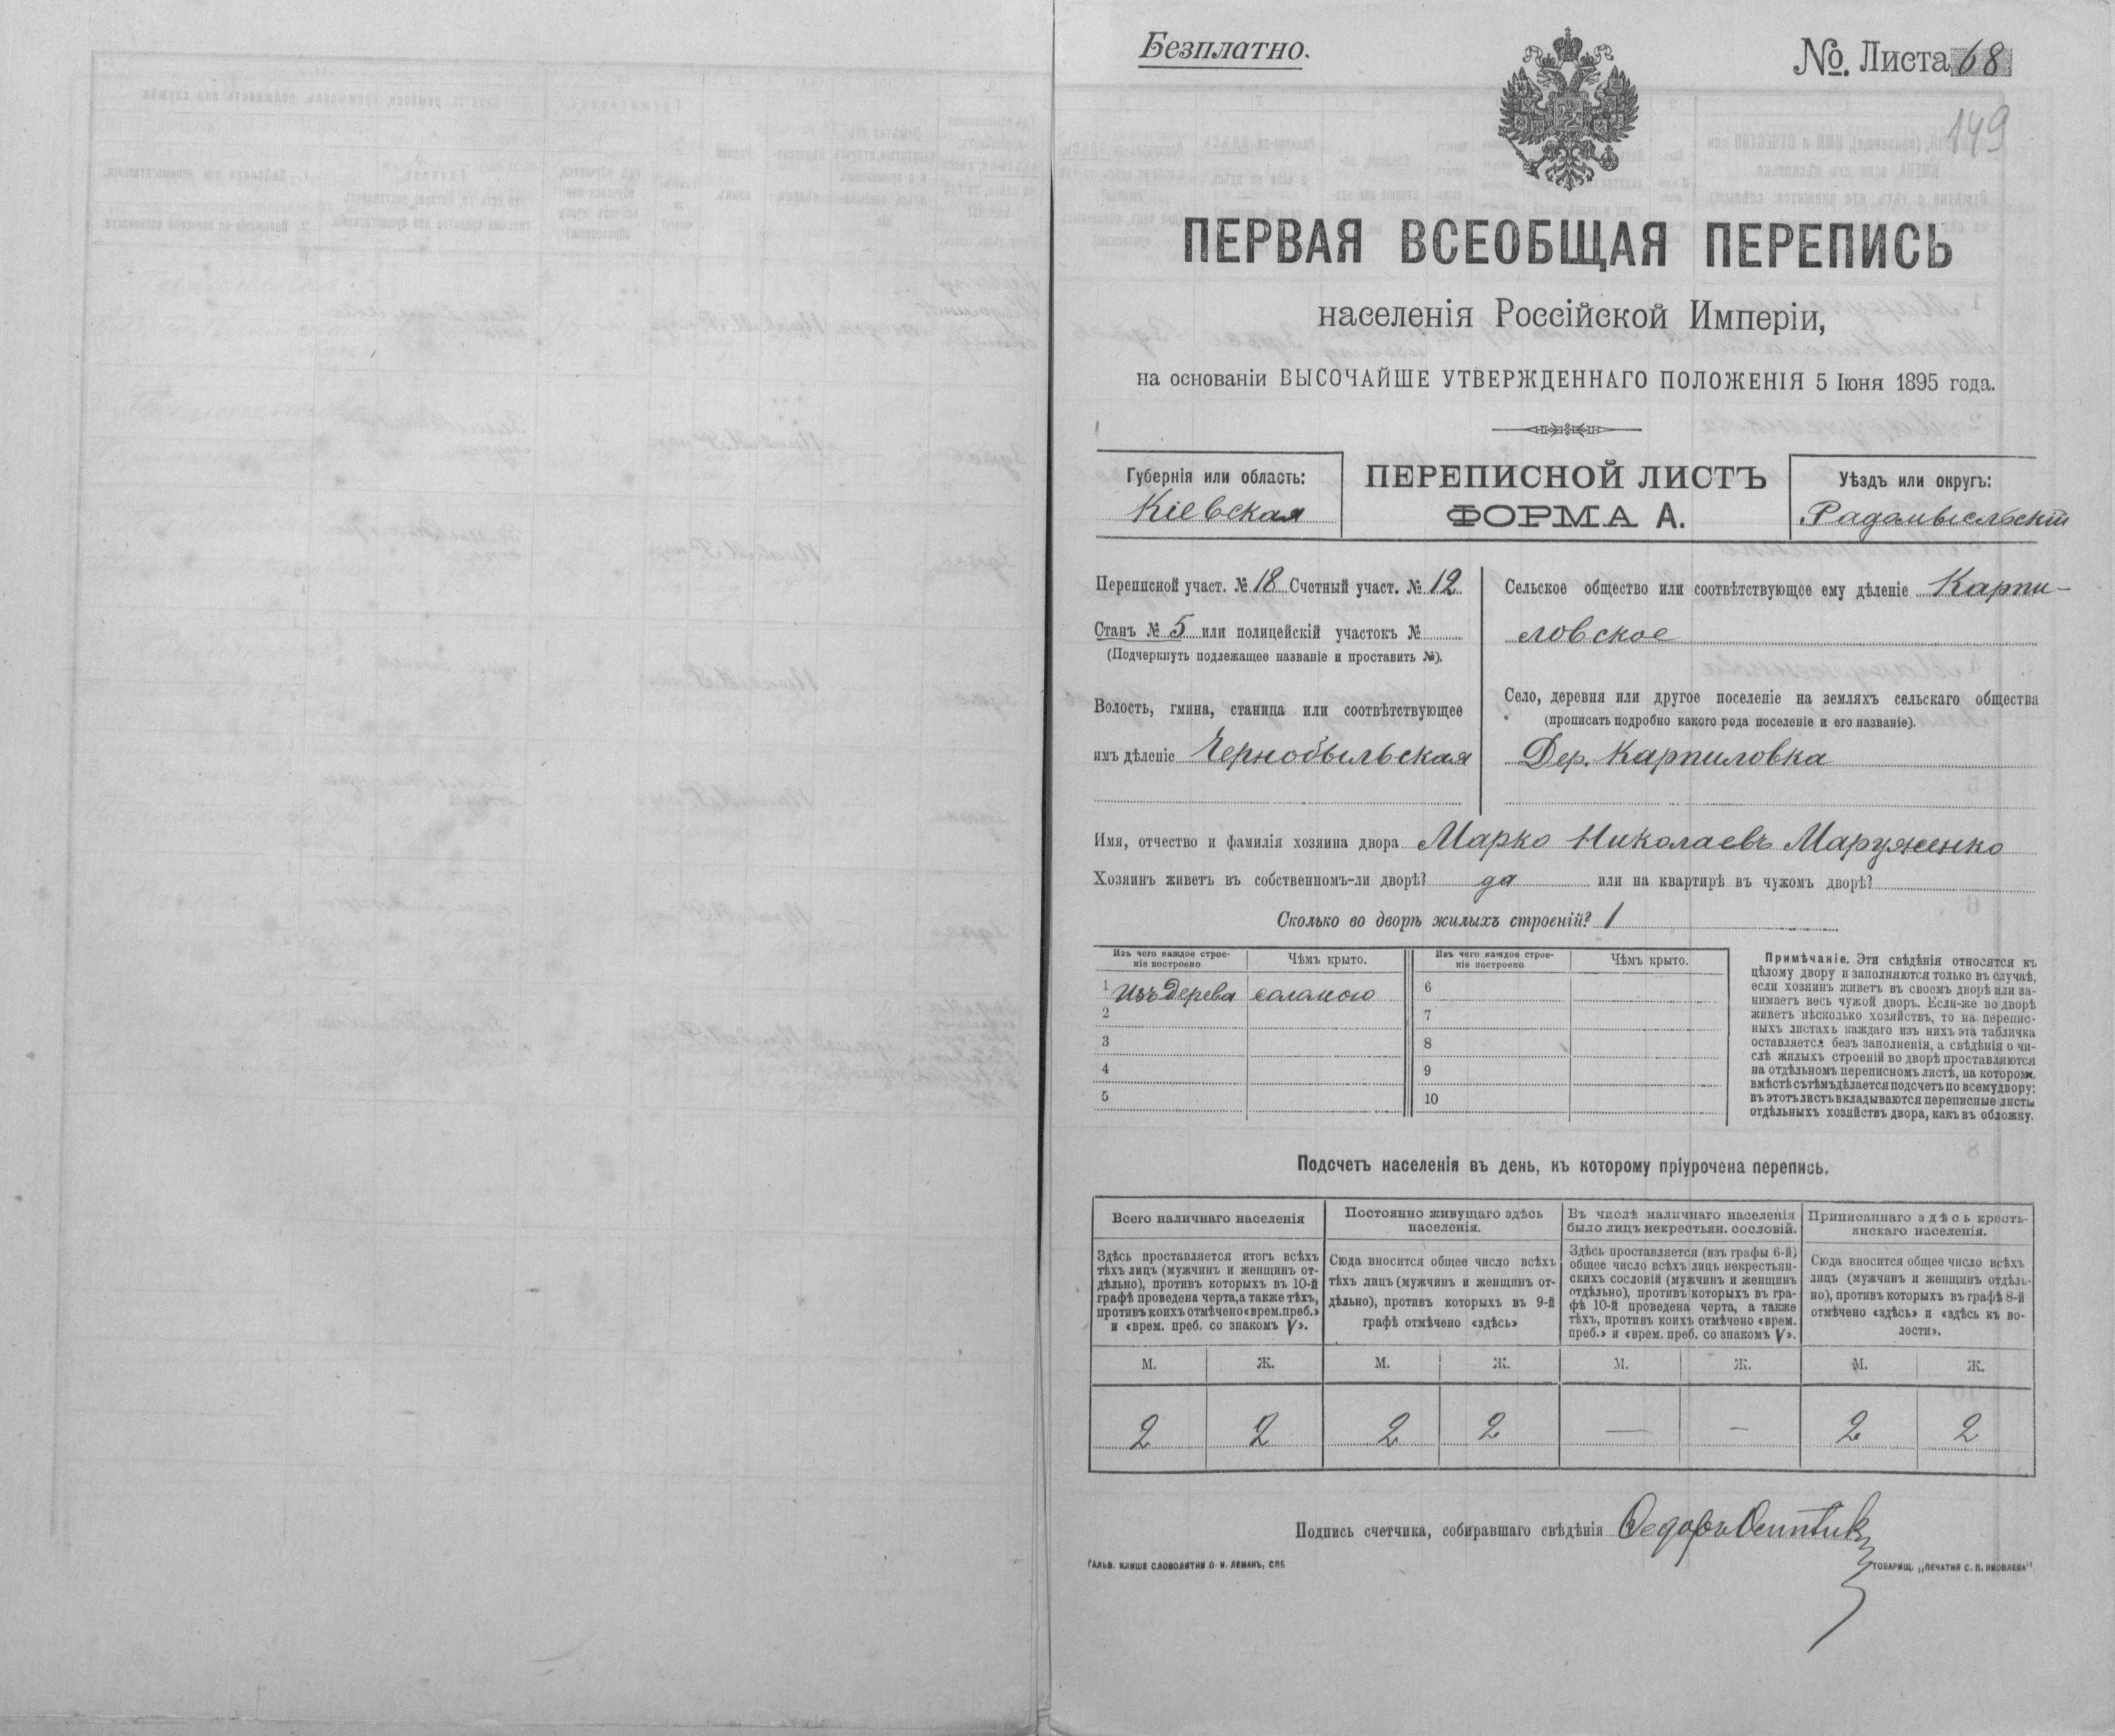 Безплатно.
№. Листа 68
149
ПЕРВАЯ ВСЕОБЩАЯ ПЕРЕПИСЬ
населенія Россійской Имперіи,
на основаніи ВЫСОЧАЙШЕ УТВЕРЖДЕННАГО ПОЛОЖЕНІЯ 5 Іюня 1895 года.
Губернія или область:
Кіевская
ПЕРЕПИСНОЙ ЛИСТЪ
ФОРМА А.
Уѣздъ или округъ:
Радомысльскій
Переписной участ. № 18 Счетный участ. № 12
Станъ № 5 или полицейскій участокъ №
(Подчеркнуть подлежащее названіе и проставить №).
Волость, гмина, станица или соотвѣтствующее
имъ дѣленіе Чернобыльская
Сельское общество или соотвѣтствующее ему дѣленіе Карпи-
ловское
Село, деревня или другое поселеніе на земляхъ сельскаго общества
(прописать подробно какого рода поселеніе и его названіе).
Дер. Карпиловка
Имя, отчество и фамилія хозяина двора Марко Николаевъ Маруженко
Хозяинъ живетъ въ собственномъ-ли дворѣ? да или на квартирѣ въ чужомъ дворѣ?
Сколько во дворѣ жилыхъ строеній? 1
Изъ чего каждое строе-
ніе построено
Чѣмъ крыто.
Изъ чего каждое строе-
ніе построено
Чѣмъ крыто.
1 Изъ дерева соломою 6
2 7
3 8
4 9
5 10
Примѣчаніе. Эти свѣдѣнія относятся къ
цѣлому двору и заполняются только въ случаѣ,
если хозяинъ живетъ въ своемъ дворѣ или за-
нимаетъ весь чужой дворъ. Если-же во дворѣ
живетъ нѣсколько хозяйствъ, то на перепис-
ныхъ листахъ каждаго изъ нихъ эта табличка
оставляется безъ заполненія, а свѣдѣнія о чи-
слѣ жилыхъ строеній во дворѣ проставляются
на отдѣльномъ переписномъ листѣ, на которомъ
вмѣстѣ съ тѣмъ дѣлается подсчетъ по всему двору;
въ этотъ листъ вкладываются переписные листы
отдѣльныхъ хозяйствъ двора, какъ въ обложку.
Подсчетъ населенія въ день, къ которому пріурочена перепись.
Всего наличнаго населенія
Здѣсь проставляется итогъ всѣхъ
тѣхъ лицъ (мужчинъ и женщинъ от-
дѣльно), противъ которыхъ въ 10-й
графѣ проведена черта, а также тѣхъ,
противъ коихъ отмѣчено «врем. преб.»
и «врем. преб. со знакомъ V».
Постоянно живущаго здѣсь
населенія.
Сюда вносится общее число всѣхъ
тѣхъ лицъ (мужчинъ и женщинъ от-
дѣльно), противъ которыхъ въ 9-й
графѣ отмѣчено «здѣсь»
Въ числѣ наличнаго населенія
было лицъ некрестьян. сословій.
Здѣсь проставляется (изъ графы 6-й)
общее число всѣхъ лицъ некрестьян-
скихъ сословій (мужчинъ и женщинъ
отдѣльно), противъ которыхъ въ гра-
фѣ 10-й проведена черта, а также
тѣхъ, противъ коихъ отмѣчено «врем.
преб.» и «врем. преб. со знакомъ V».
Приписаннаго здѣсь кресть-
янскаго населенія.
Сюда вносится общее число всѣхъ
лицъ (мужчинъ и женщинъ отдѣль-
но), противъ которыхъ въ графѣ 8-й
отмѣчено «здѣсь» и «здѣсь къ во-
лости».
М. Ж. М. Ж. М. Ж. М. Ж.
2 2 2 2 — — 2 2
Подпись счетчика, собиравшаго свѣдѣнія Ѳедоръ
ГАЛЬВ. КЛИШЕ СЛОВОЛИТНИ О. И. ЛЕМАНЪ, СПБ
ТОВАРИЩ. „ПЕЧАТНЯ С. П. ЯКОВЛЕВА"